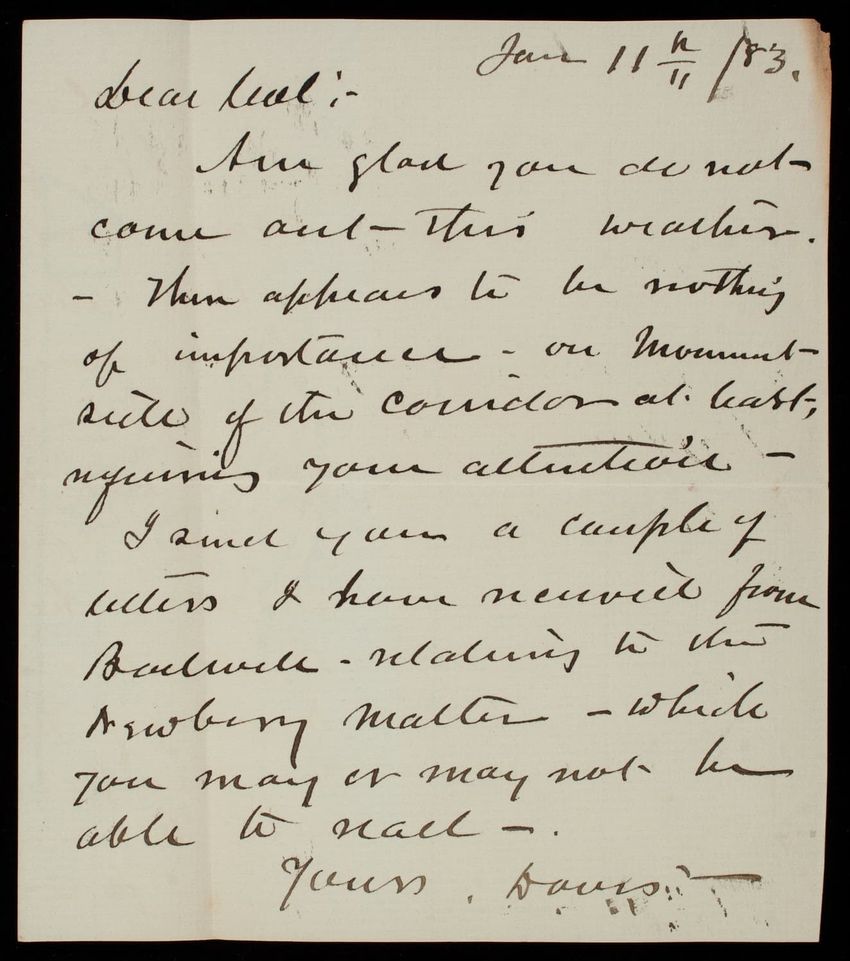 Jan 11th /83.
Dear Col:-
Am glad you do not
come out - this weather.
- There appears to be nothing
of importance - on Monument
side of the corridor at least,
requiring your attention -
I send you a couple of
letters I have received from
Bodwell - relating to the
Newberry matter - which
you may or may not be
able to read -.
Yours, Davis -